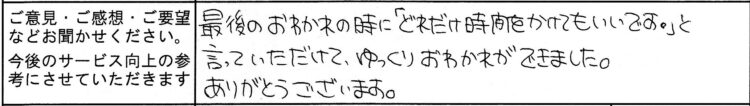 ご意見・ご感想・ご要望
などお聞かせください。
今後のサービス向上の参
考にさせていただきます
最後のおわかれの時に「どれだけ時間をかけてもいいです。」と
言っていただけて、ゆっくりおわかれができました。
ありがとうございます。